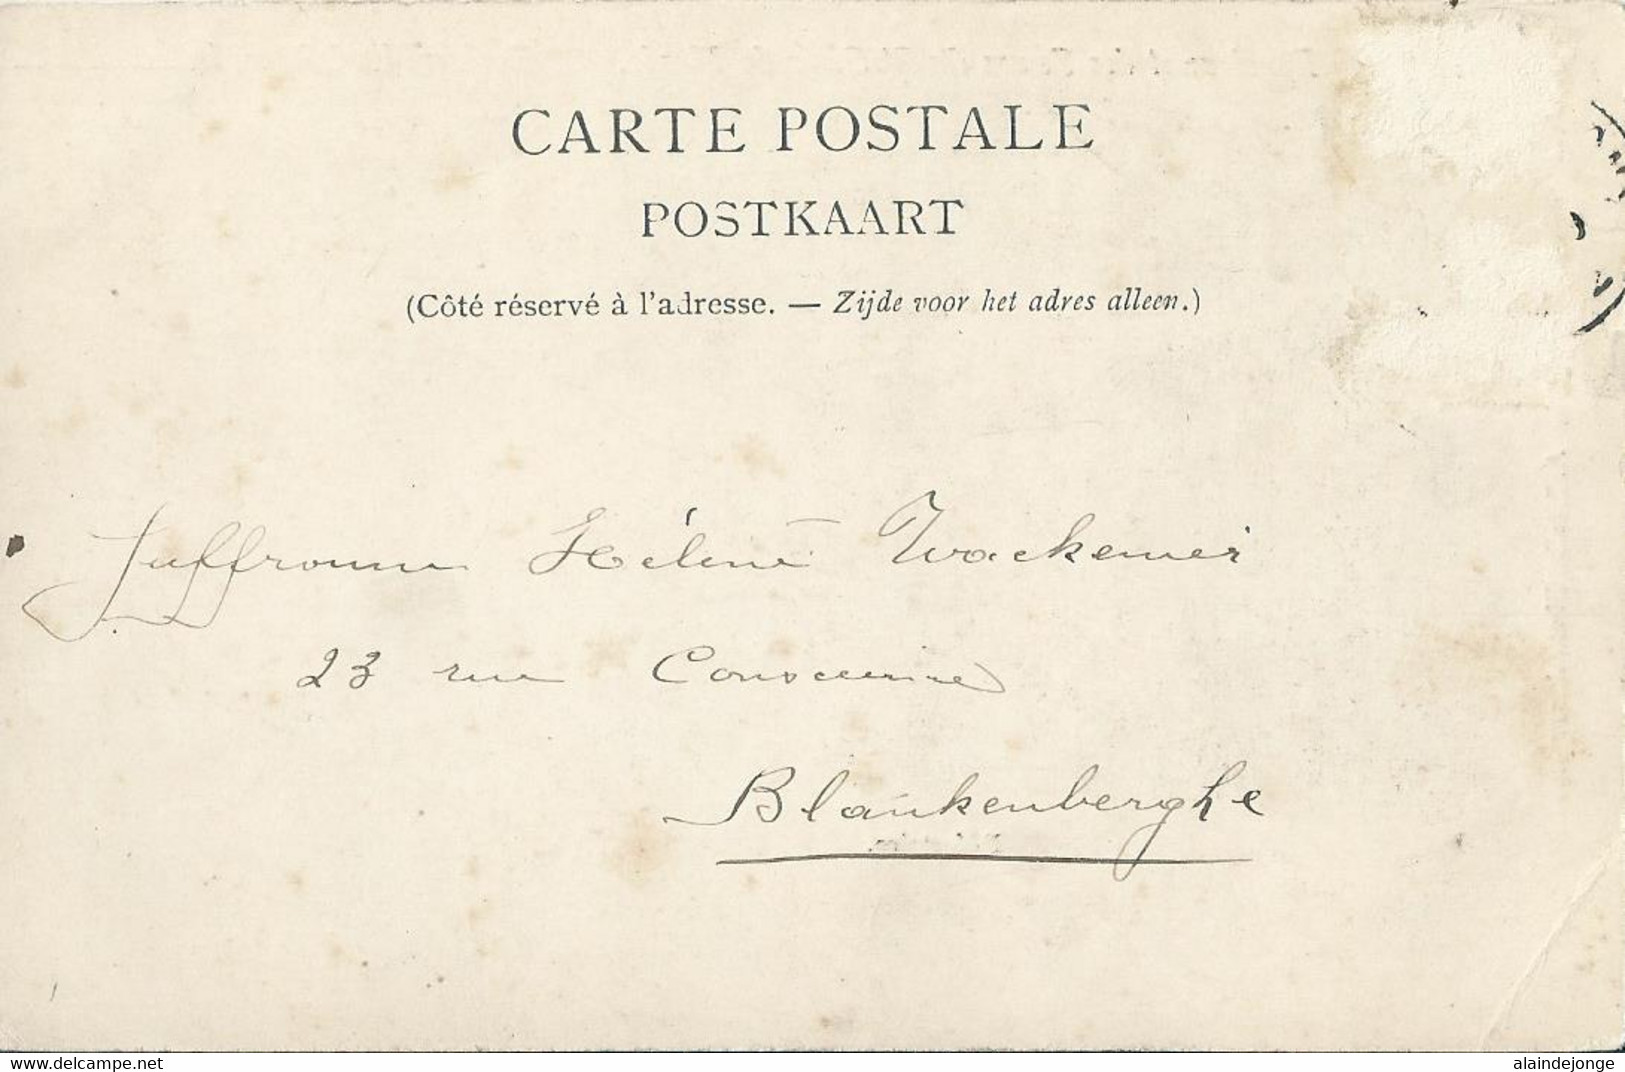 CARTE POSTALE
POSTKAART
(Côté réservé à l'adresse. — Zijde voor het adres alleen.)
Juffrouw Hélène
23 rue
Blankenberghe
the-postcard.be.net alaindejonge